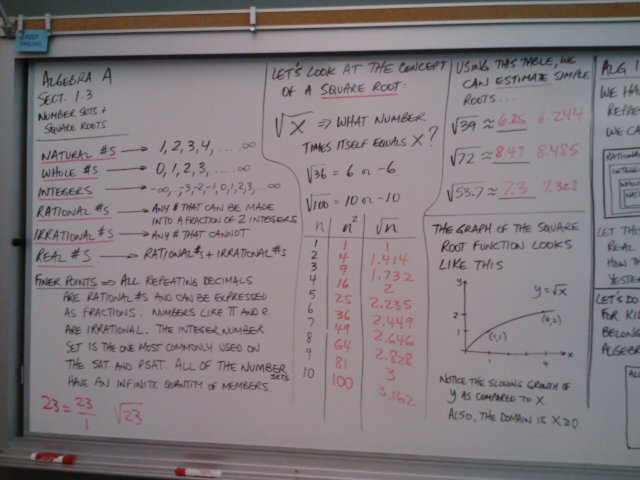 KEEP
SMILING
ALGEBRA A
SECT. 1.3
NUMBER SETS +
SQUARE ROOTS
NATURAL #S → 1, 2, 3, 4, .... ∞
WHOLE #S → 0, 1, 2, 3, .... ∞
INTEGERS → -∞, ..-3,-2,-1,0,1,2,3,.. ∞
RATIONAL #S → ANY # THAT CAN BE MADE
INTO A FRACTION OF 2 INTEGERS
IRRATIONAL #S → ANY # THAT CANNOT
REAL #S → RATIONAL #S + IRRATIONAL #S
FINER POINTS ⇒ ALL REPEATING DECIMALS
ARE RATIONAL #S AND CAN BE EXPRESSED
AS FRACTIONS. NUMBERS LIKE π AND e
ARE IRRATIONAL. THE INTEGER NUMBER
SET IS THE ONE MOST COMMONLY USED ON
THE SAT AND PSAT. ALL OF THE NUMBER SETS
HAVE AN INFINITE QUANTITY OF MEMBERS.
23 = 23/1 √23
LET'S LOOK AT THE CONCEPT
OF A SQUARE ROOT:
√X ⇒ WHAT NUMBER
TIMES ITSELF EQUALS X?
√36 = 6 or -6
√100 = 10 or -10
n n² √n
1 1 1
2 4 1.414
3 9 1.732
4 16 2
5 25 2.235
6 36 2.449
7 49 2.646
8 64 2.828
9 81 3
10 100 3.162
USING THIS TABLE, WE
CAN ESTIMATE SIMPLE
ROOTS...
√39 ≈ 6.25 6.244
√72 ≈ 8.47 8.485
√53.7 ≈ 7.3 7.328
THE GRAPH OF THE SQUARE
ROOT FUNCTION LOOKS
LIKE THIS
y
y=√x
2
1
(1,1)
(4,2)
4
x
NOTICE THE SLOWING GROWTH OF
y AS COMPARED TO X.
ALSO, THE DOMAIN IS X≥0.
ALG 1
WE HA
REPRE
WE CA
RATIONAL
INTEGER
WHOLE
NATU
LET THIS
REAL
HOW TH
YESTER
LET'S DO
FOR KI
BELONG
ALGEBR
ALL